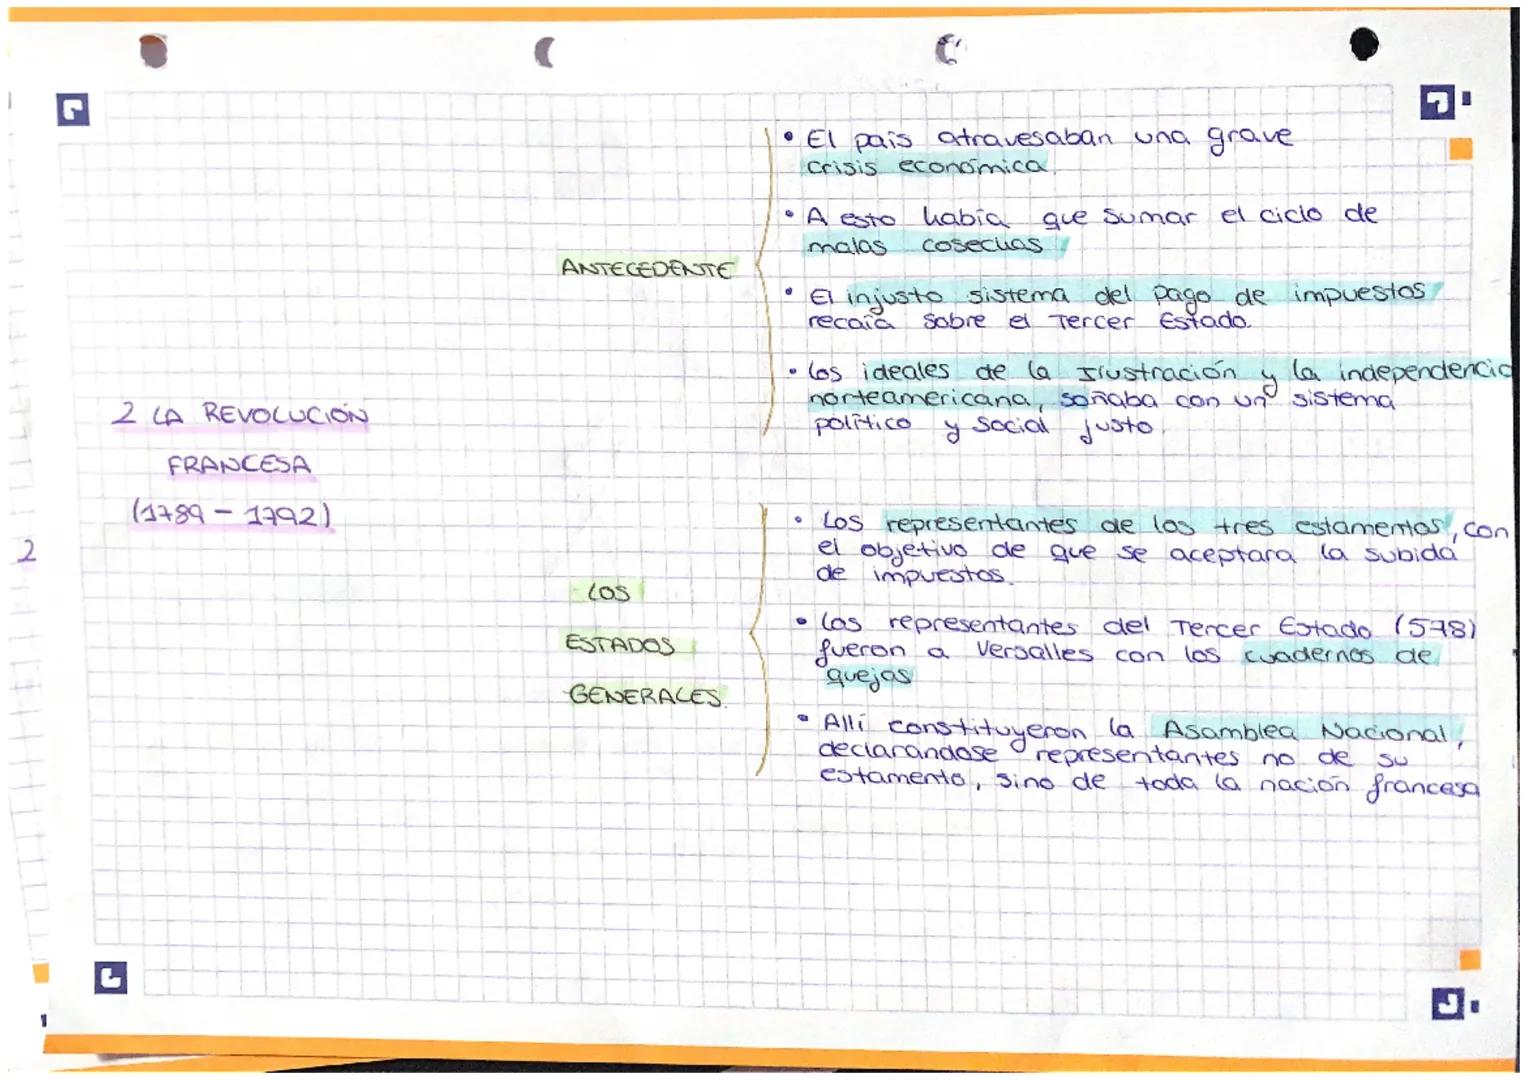 2 LA REVOLUCIÓN
FRANCESA
(1789 - 1792)
2
ANTECEDENTE
• El país atravesaban una grave
crisis económica.
• A esto había que sumar el ciclo de
malas cosechas
• El injusto sistema del pago de impuestos
recaía sobre el Tercer Estado.
• Los ideales de la Ilustración y la independencia
norteamericana, soñaba con un sistema
político y social justo.
LOS
ESTADOS
GENERALES.
• Los representantes de los tres estamentos, con
el objetivo de que se aceptara la subida
de impuestos.
• Los representantes del Tercer Estado (578)
fueron a Versalles con los cuadernos de
quejas
• Allí constituyeron la Asamblea Nacional,
declarandose representantes no de su
estamento, sino de toda la nación francesa